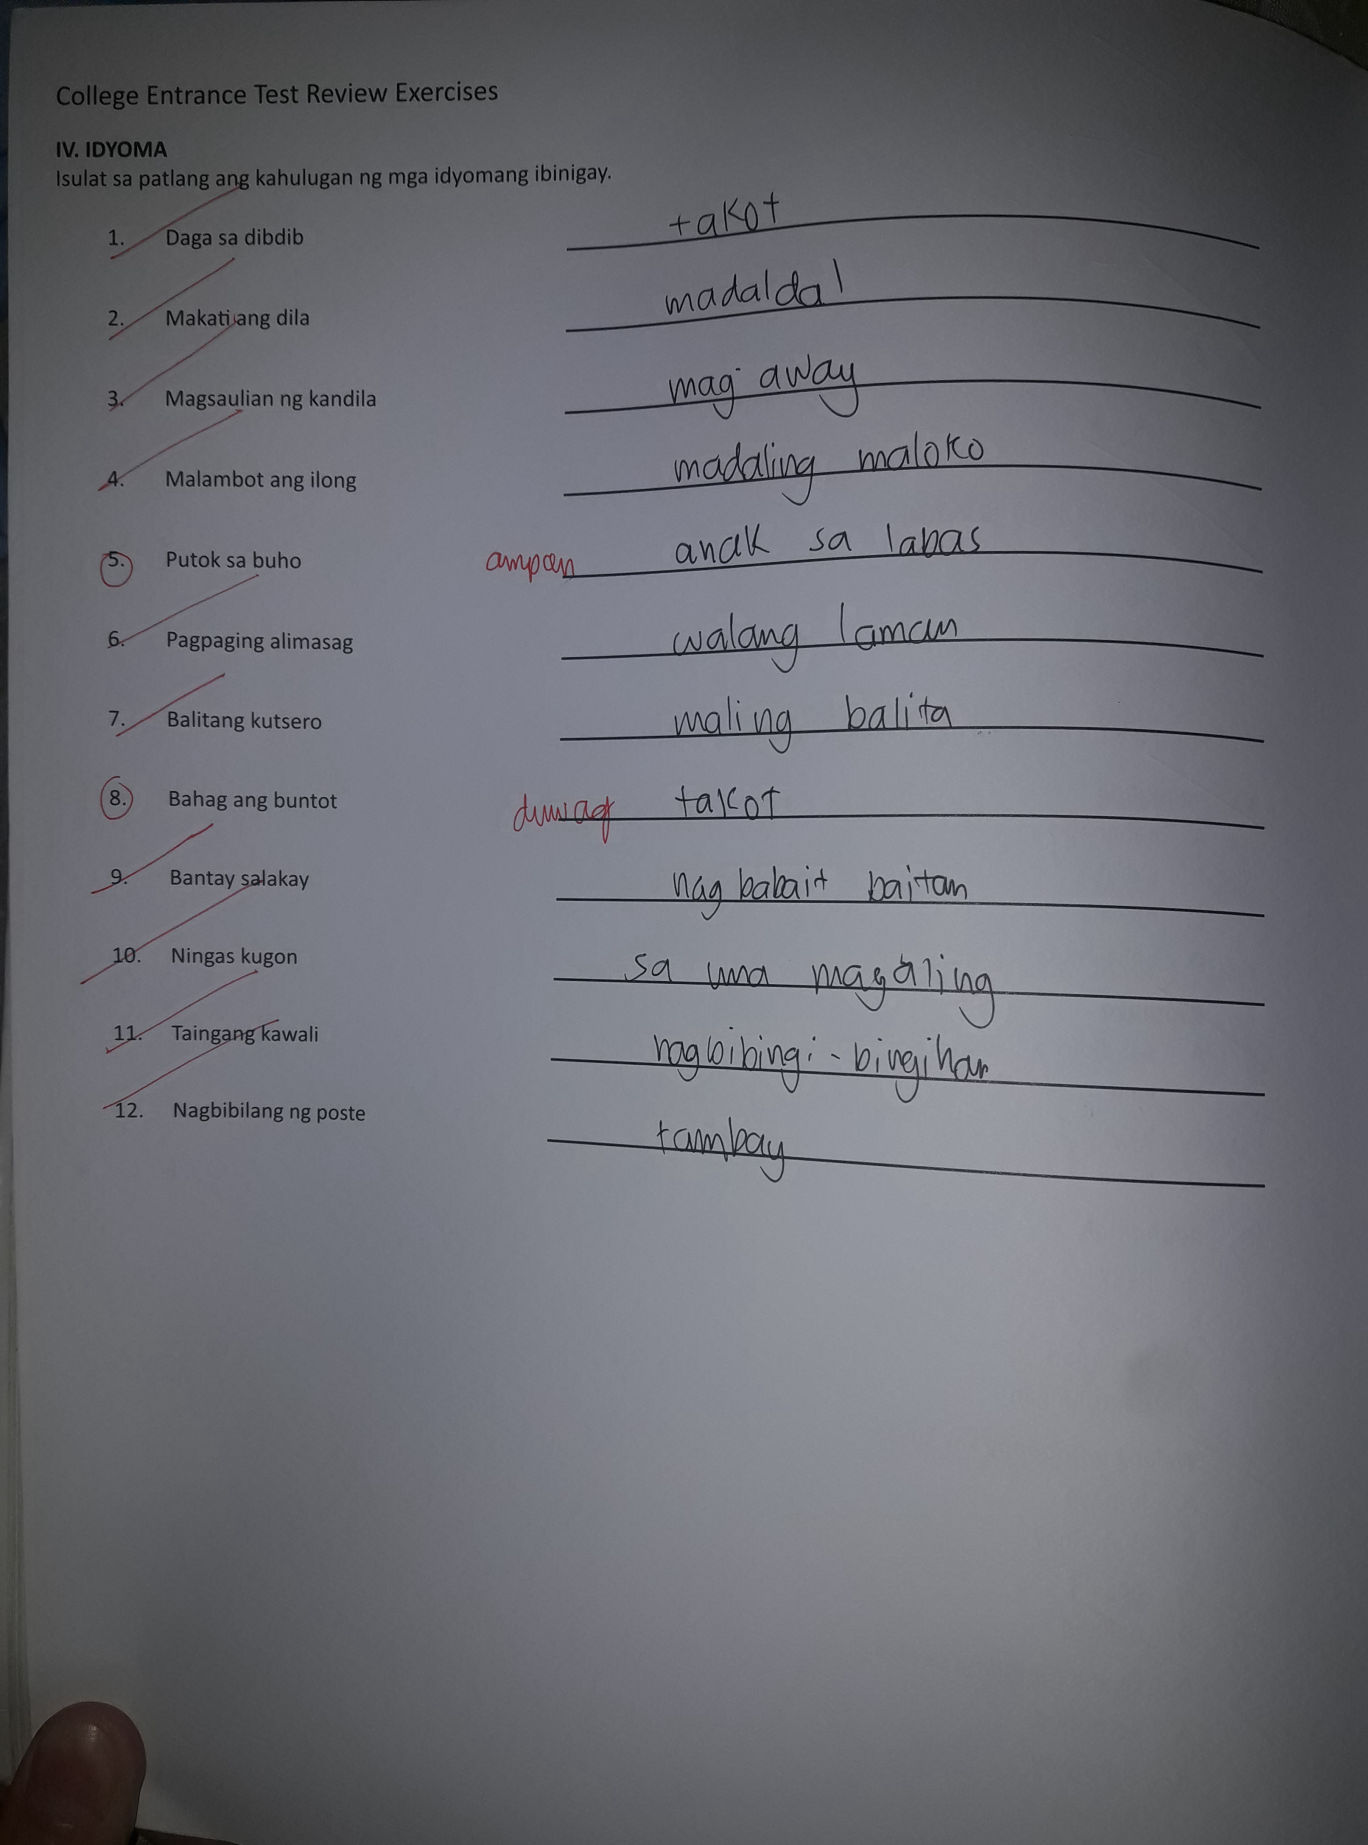 College Entrance Test Review Exercises
IV. IDYOMA
Isulat sa patlang ang kahulugan ng mga idyomang ibinigay.
1. Daga sa dibdib takot
2. Makati ang dila madaldal
3. Magsaulian ng kandila mag-away
4. Malambot ang ilong madaling maloko
5. Putok sa buho ampon anak sa labas
6. Pagpaging alimasag walang laman
7. Balitang kutsero maling balita
8. Bahag ang buntot duwag takot
9. Bantay salakay nag babait baitan
10. Ningas kugon sa una magaling
11. Taingang kawali nagbibingi-bingihan
12. Nagbibilang ng poste tambay